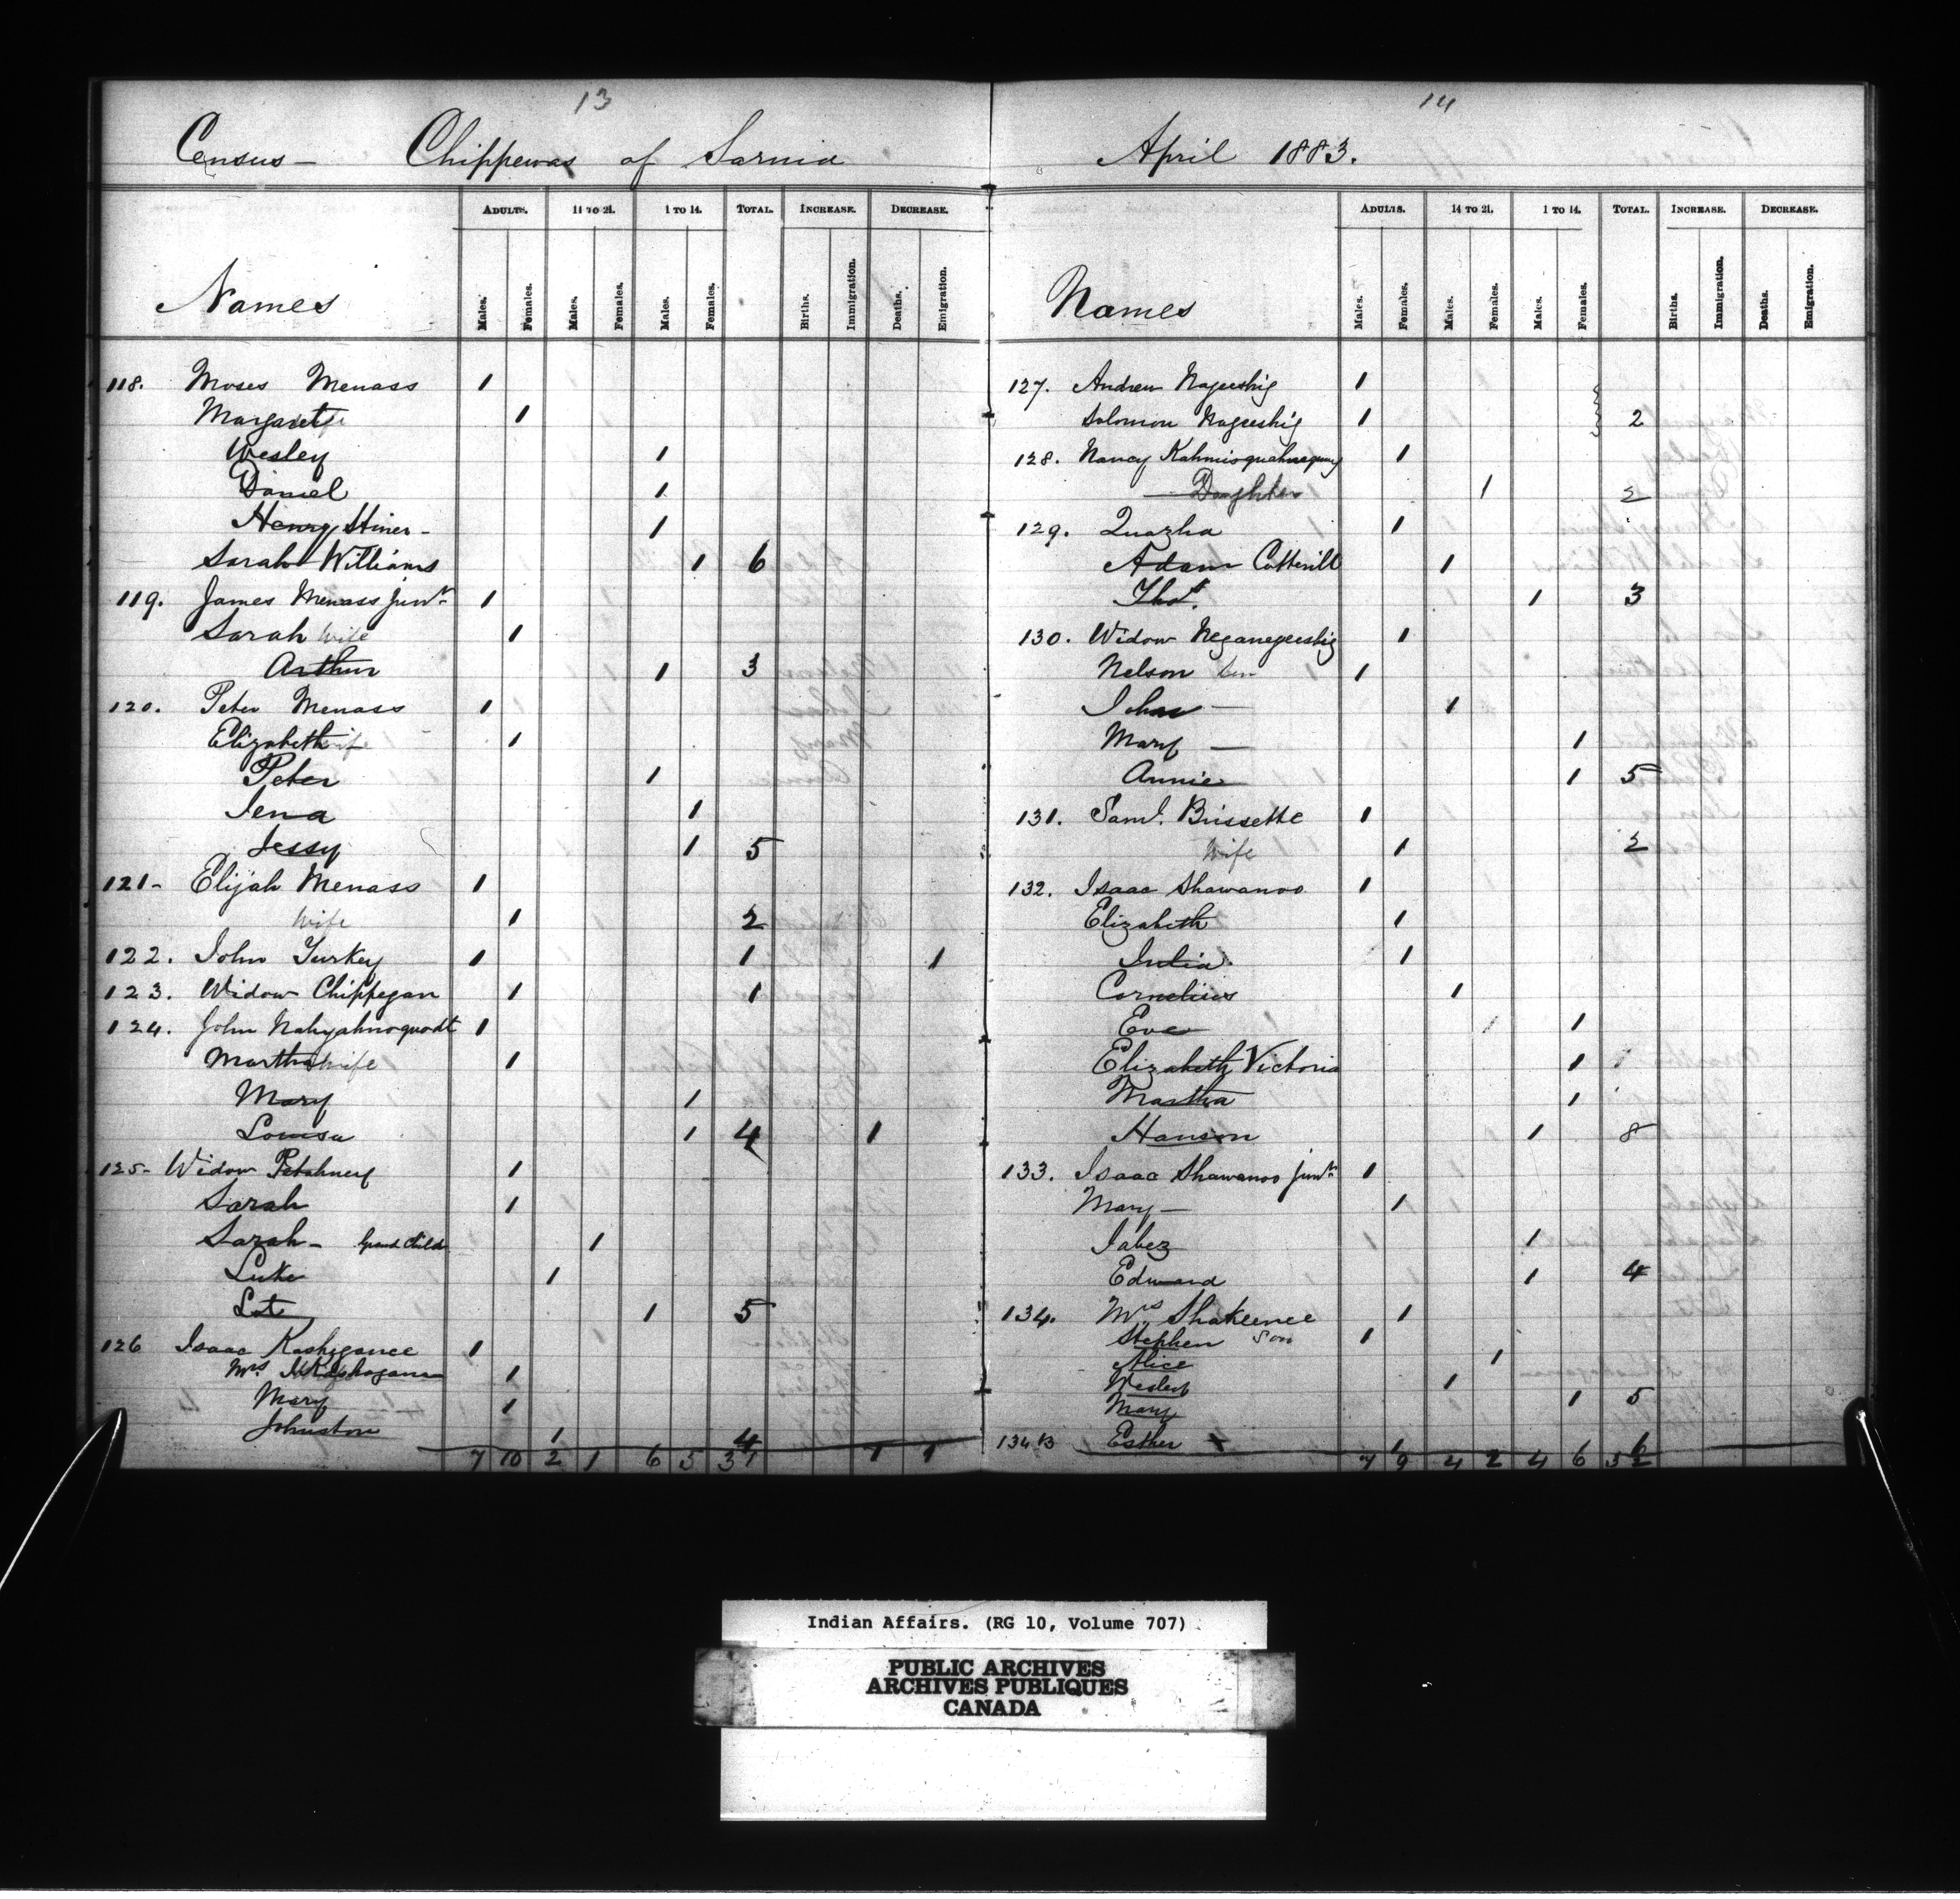 13
Census - Chippewas of Sarnia
ADULTS. 14 TO 21. 1 TO 14. TOTAL. INCREASE. DECREASE.
Names Males. Females. Males. Females. Males. Females. Births. Immigration. Deaths. Emigration.
118. Moses Menass 1
Margaret wife 1
Wesley 1
Daniel 1
Henry Stiner - 1
Sarah Williams 1 6
119. James Menass junr 1
Sarah wife 1
Arthur 1 3
120. Peter Menass 1
Elizabeth wife 1
Peter 1
Jena 1
Jessy 1 5
121- Elijah Menass 1
wife 1 2
122. John Turkey 1 1 1
123. Widow Chippegan 1 1
124. John Nahyahnoquodt 1
Martha wife 1
Mary 1
Louisa 1 4 1
125- Widow Petahney 1
Sarah 1
Sarah - Grand Child 1
Luke 1
Lot 1 5
126 Isaac Kashegance 1
Mrs. 1
Mary 1
Johnston 1 4
7 10 2 1 6 5 31 1 1
14
April 1883.
ADULTS. 14 TO 21. 1 TO 14. TOTAL. INCREASE. DECREASE.
Names Males. Females. Males. Females. Males. Females. Births. Immigration. Deaths. Emigration.
127. Andrew Nageeshig 1
Solomon Nageeshig 1 2
128. Nancy 1
Daughter 1 2
129. Quazha 1
Adam Cotterill 1
Thos. 1 3
130. Widow Neganegeeshig 1
Nelson Son 1
John - 1
Mary - 1
Annie 1 5
131. Saml. Brissette 1
Wife 1 2
132. Isaac Shawanoo 1
Elizabeth 1
Julia 1
Cornelius 1
Eve 1 1
Elizabeth Victoria 1
Martha 1
Hanson 1 8
133. Isaac Shawanoo junr 1
Mary - 1
Jabez 1
Edward 1 4
134. Mrs Shakeence 1
Stephen Son 1
Alice 1
Wesley 1
Mary 1 5
134 B Esther 1
7 9 4 2 4 6 32
Indian Affairs. (RG 10, Volume 707)
PUBLIC ARCHIVES
ARCHIVES PUBLIQUES
CANADA